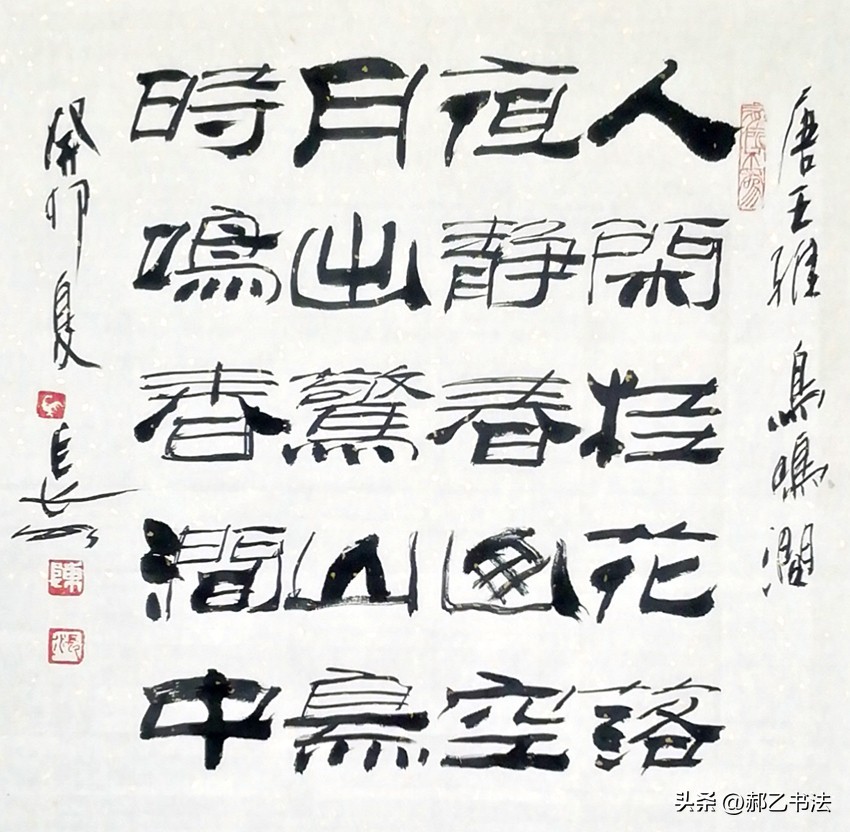 唐王維 鳥鳴澗
人閑桂花落
夜靜春山空
月出驚山鳥
時鳴春澗中
癸卯夏
頭条 @郝乙书法